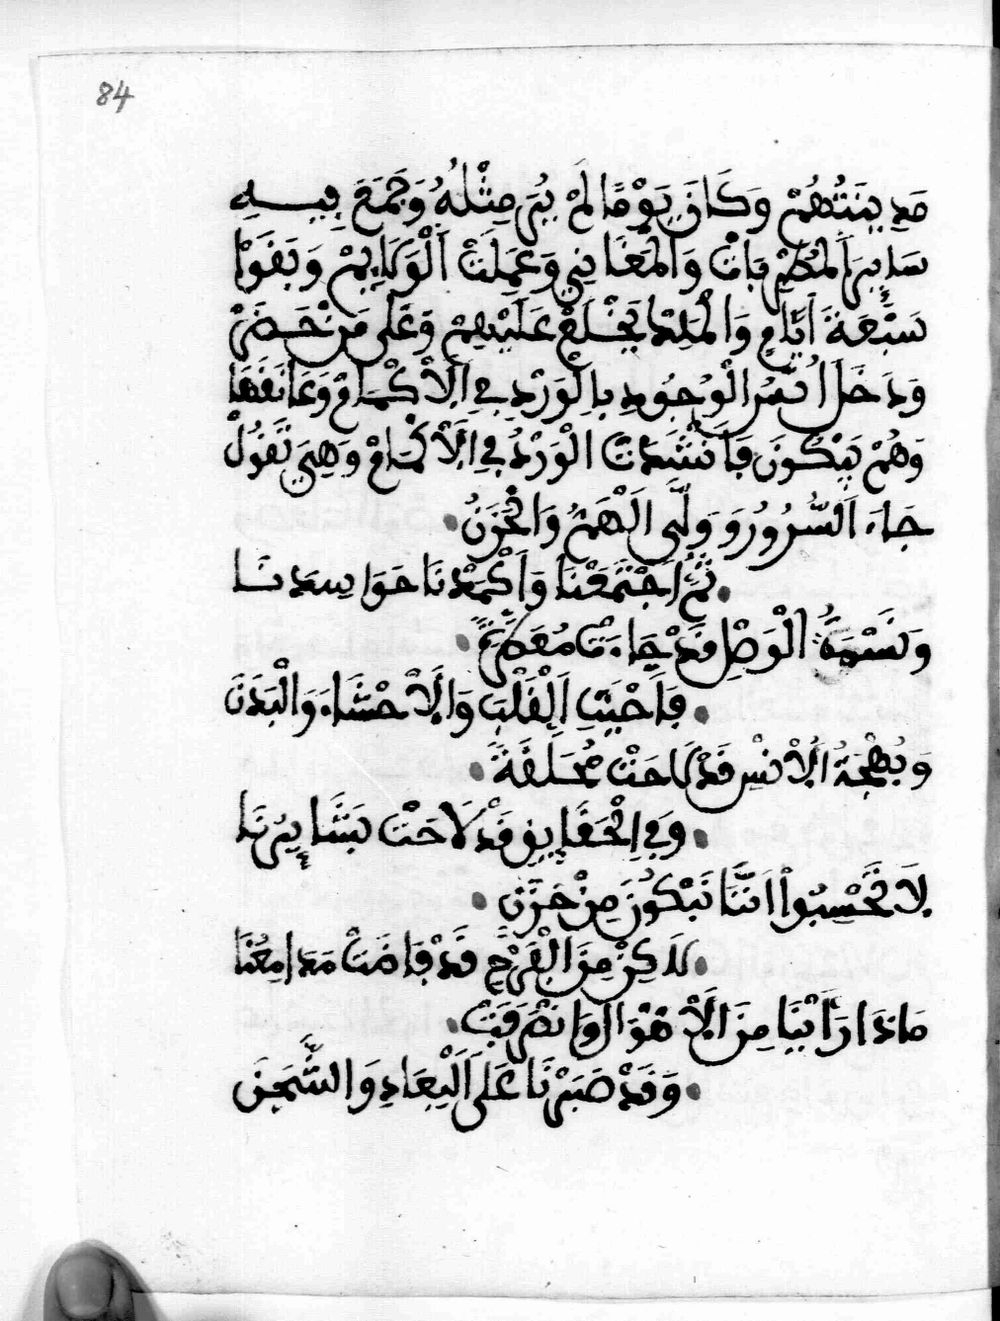 84
مَدِينَتُهُمْ وَكَانَ يَوْمًا لَمْ يُرَ مِثْلُهُ وَجَمَعَ فِيهِ
سَايِرَ الْمُطْرِبَاتْ وَالْمَغَانِي وَعَمِلَتْ اَلْوَلَايِمْ وَبَقَوْا
سَبْعَةَ اَيَّامٍ وَالْمَلِكْ يَخْلَعْ عَلَيْهِمْ وَعَلَى مَنْ حَضَرْ
وَدَخَلَ اُنْسُ الْوُجُودِ بِالْوَرْدِ فِي اَلْاَكْمَامْ وَعَانَقَهَا
وَهُمْ يَبْكُونَ فَاَنْشَدَتْ الْوَرْدُ فِي اَلْاَكْمَامْ وَهِيَ تَقُولْ
جَاءَ اَلسُّرُورُ وَوَلَّى اَلْهَمُّ وَالْحَزَنُ
ثُمَّ اَجْتَمَعْنَا وَاَكْمَدْنَا حَوَاسِدَنَا
وَنَسْمَةُ الْوَصْلِ قَدْ جَاءَتْ مُعَطَّرَةً
فَاَحْيَتِ اَلْقَلْبَ وَالْاَحْشَاءَ وَالْبَدَنَ
وَبُهْجَةُ اَلْاُنْسِ قَدْ لَاحَتْ مُخَلَّقَةً
وَفِي اِلْخَفَايِقِ قَدْ لَاحَتْ بَشَايِرُنَا
لَا تَحْسِبُوا اَنَّنَا نَبْكُونَ مِنْ حَزَنٍ
لَكِنْ مِنَ الْفَرْحِ قَدْ فَاضَتْ مَدَامِعُنَا
مَاذَا رَاَيْنَا مِنَ اَلْاَهْوَالِ وَانْصَرَفَتْ
وَقَدْ صَبَرْنَا عَلَى اَلْبِعَادِ وَالشَّجَنِ